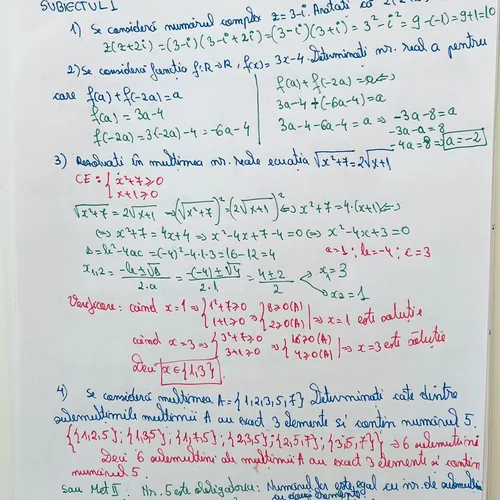 SUBIECTUL 1
1) Se consideră numărul complex z=3-i. Arătați că
z(z+2i)=(3-i)(3-i+2i)=(3-i)(3+i)=3²-i²=9-(-1)=9+1=10
2) Se consideră funcția f:R→R, f(x)=3x-4. Determinați nr. real a pentru
care f(a)+f(-2a)=a
f(a)=3a-4
f(-2a)=3(-2a)-4=-6a-4
f(a)+f(-2a)=a⇔
3a-4+(-6a-4)=a
3a-4-6a-4=a ⇒ -3a-8=a
-3a-a=8
-4a=8 ⇒ a=-2
3) Rezolvați în mulțimea nr. reale ecuația √x²+7=2√x+1
CE: { x²+7≥0
x+1≥0
√x²+7=2√x+1 ⇒(√x²+7)²=(2√x+1)² ⇔ x²+7=4·(x+1)⇔
⇔ x²+7=4x+4 ⇒ x²-4x+7-4=0 ⇔ x²-4x+3=0
Δ=b²-4ac=(-4)²-4·1·3=16-12=4
a=1; b=-4; c=3
x1,2=-b±√Δ/2·a=-(-4)±√4/2·1=4±2/2
x1=3
x2=1
Verificare: când x=1 ⇒ {1²+7≥0 1+1≥0 ⇒ {8≥0(A) 2≥0(A) | ⇒ x=1 este soluție
când x=3 ⇒ {3²+7≥0 3+1≥0 ⇒ {16≥0(A) 4≥0(A) | ⇒ x=3 este soluție
Deci x∈{1,3}
4) Se consideră mulțimea A={1,2,3,5,7} Determinați câte dintre
submulțimile mulțimii A au exact 3 elemente și conțin numărul 5.
{{1,2,5}; {1,3,5}; {1,7,5}; {2,3,5}; {2,5,7}; {3,5,7}} ⇒ 6 submulțimi
Deci 6 submulțimi ale mulțimii A au exact 3 elemente și conțin
numărul 5.
sau Met II. Nr. 5 este obligatoriu: Numărul lor este egal cu nr. de submulțimi
cu două elemente